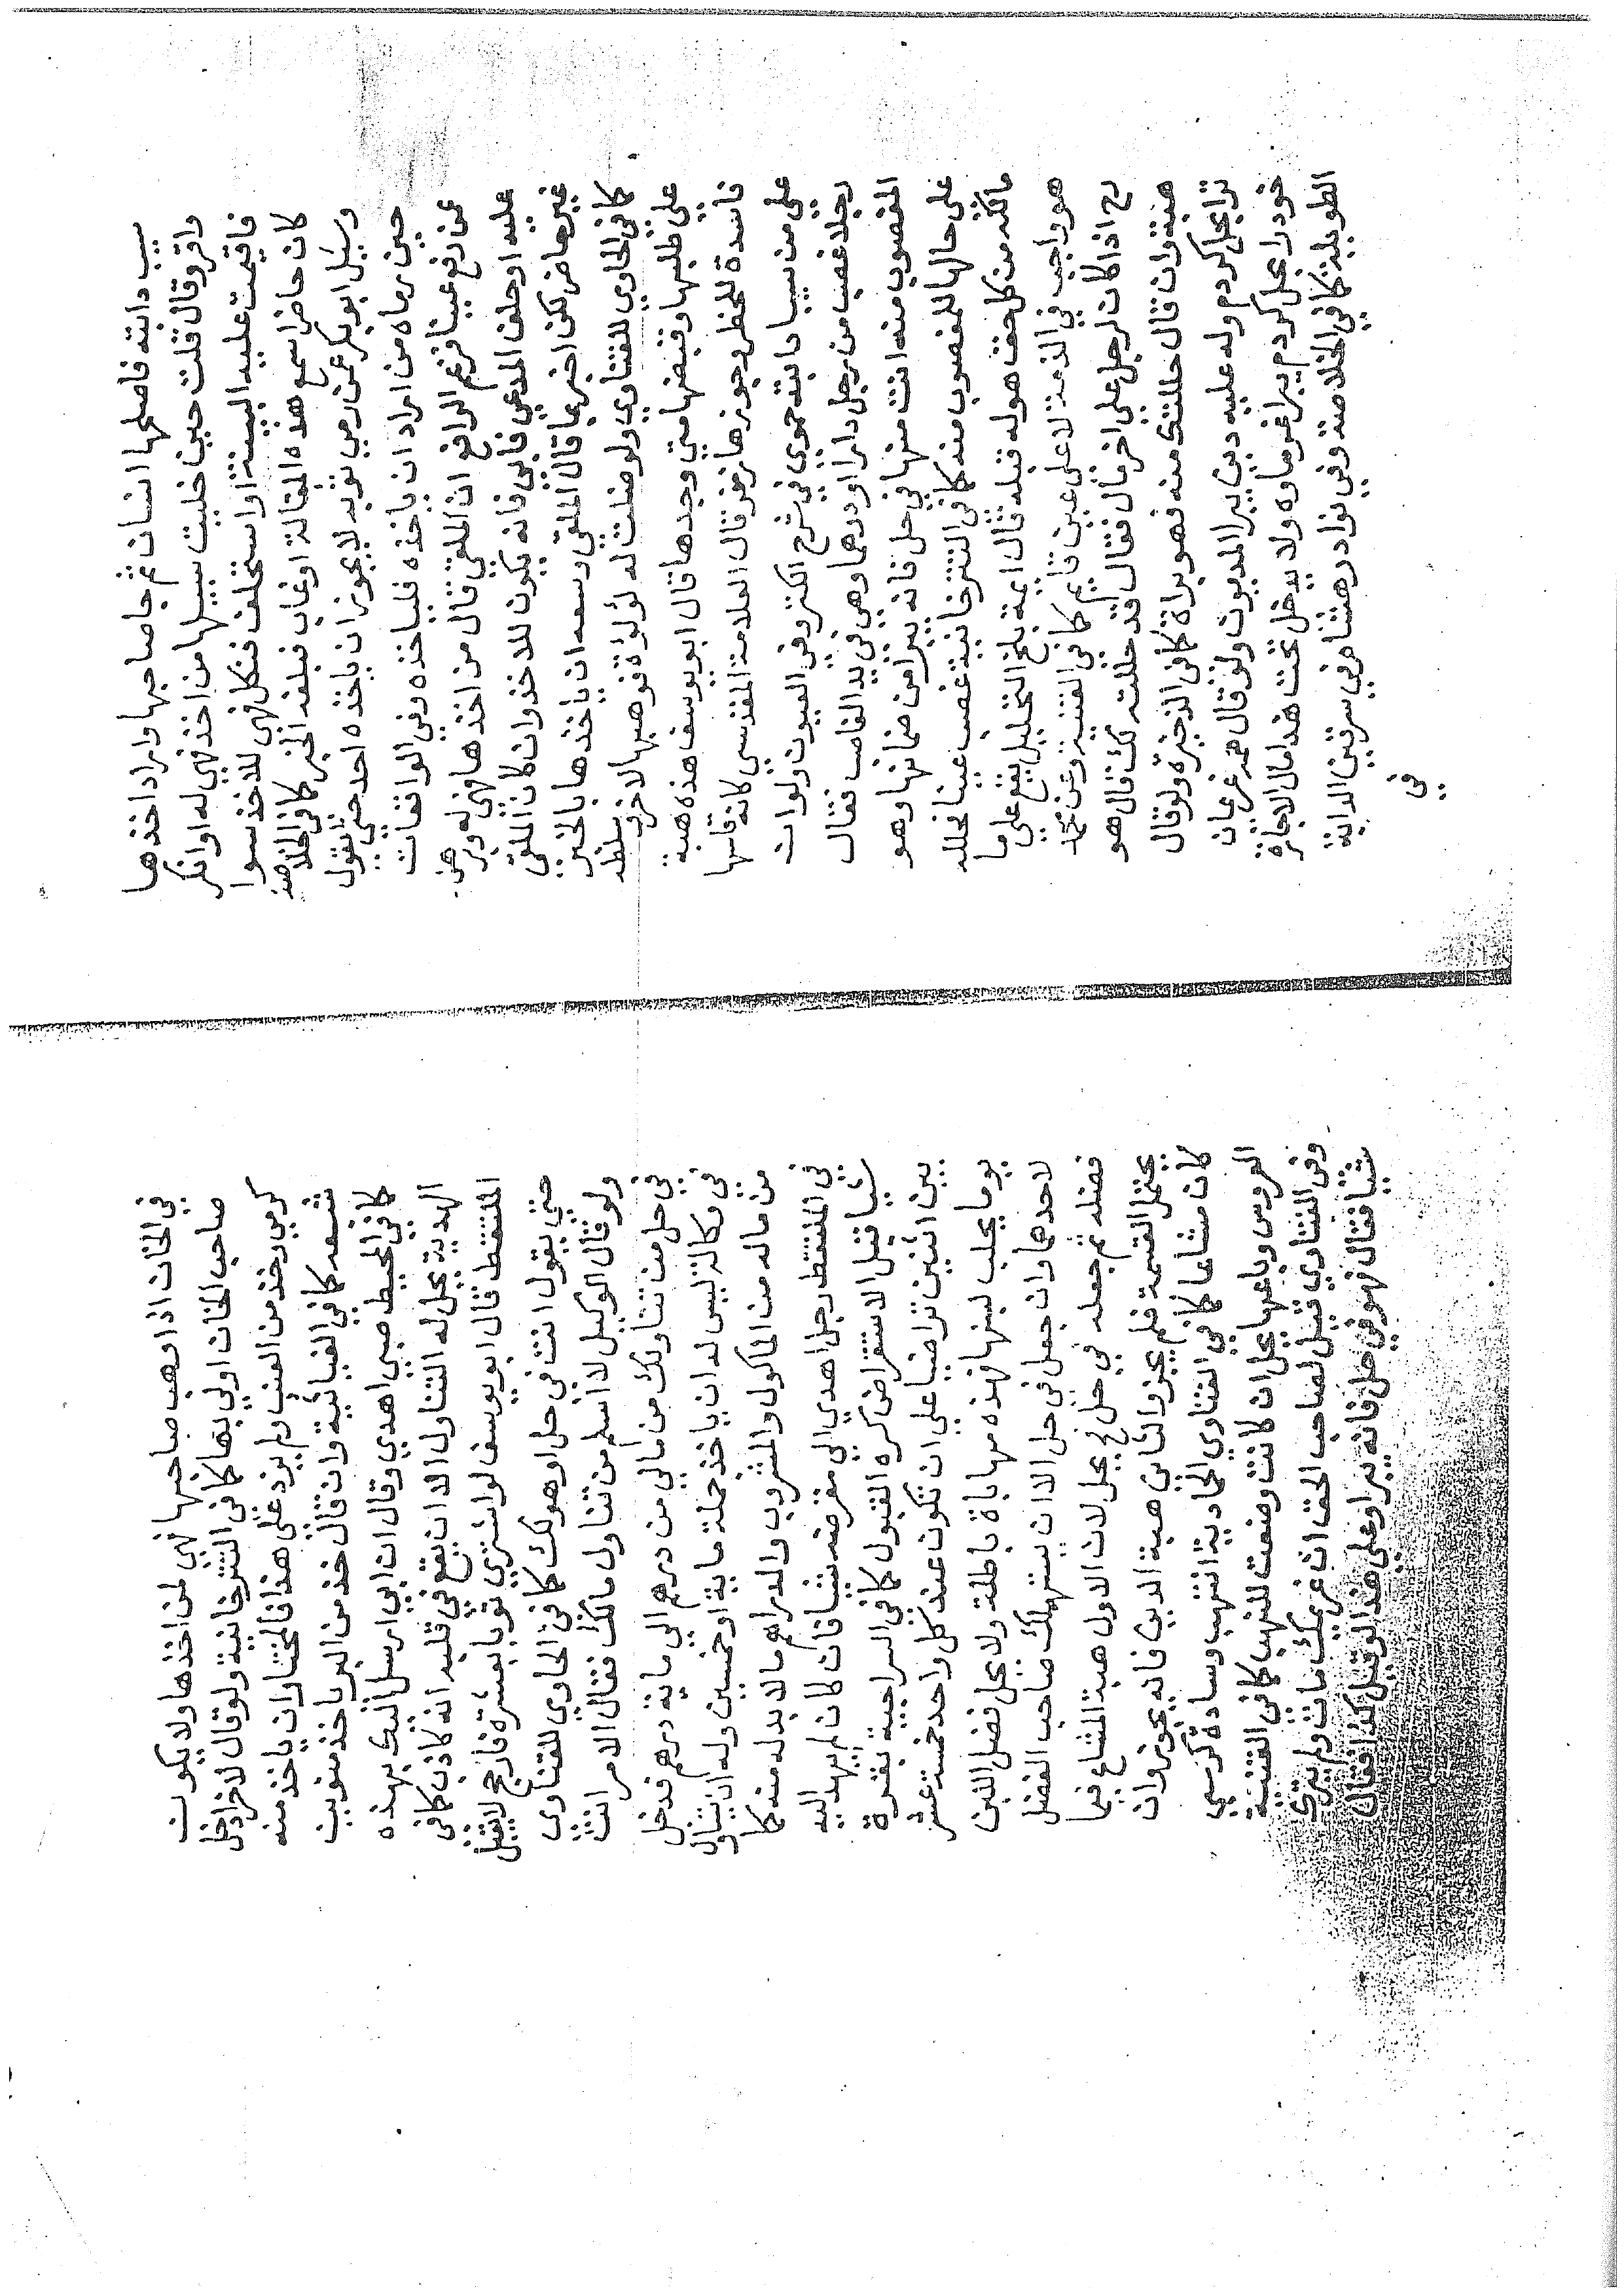 سيب دابته فاصلحها انسان ثم جا صاحبها واراد اخذها
واقر وقال قلت حين خليت سبيلها من اخذ فهي له او انكر
فاقيمت عليه البينة او استحلف فنكل فهي للاخذ سوا
كان حاضرا سمع هذه المقالة او غاب فبلغه الخبر كما في الخلاصة
وسئل ابو بكر عن رمي ثوبه لا يجوز ان ياخذه احد حتى يقول
حين رماه من اراد ان ياخذه فلياخذه وفي الواقعات
عن رفع عينا فزعم الرافع ان الملقي قال من اخذها فهي له وبرهن
عليه او حلف المدعي فابى فانه يكون للاخذ وان كان الملقي
غير حاضر لكن اخبر بما قال الملقي وسعه ان ياخذها بالخبر
كما في الحاوي للفتاوي ولو ضلت له لؤلؤة فوهبها لاخر وسلطه
على طلبها وقبضها متى وجدها قال ابو يوسف هذه هبة
فاسدة للخطر وجوزها زفر قال العلامة المقدسي كانه قاسها
على من سيب دابته حموي في شرح الكنز وفي العيون ولو ان
رجلا غصب من رجل دارا او درهما وهي في يد الغاصب فقال
المغصوب منه انت منها في حل فانه يبرا من ضمانها وهو
على حالها للمغصوب منه كما في التترخانية غصب عينا فحلله
مالكه من كل حق هو له قبله قال ايمة بلخ التحليل يقع على ما
هو واجب في الذمة لا على عين قايم كما في القنية وعن محمد
رح اذا كان لرجل على اخر مال فقال قد حللته لك قال هو
هبة وان قال حللتك منه فهو براة كما في الذخيرة ولو قال
ترا بحل كردم وله عليه دين يبرا المديون ولو قال همه غريمان
خود را بحل كردم يبرا غرماوه ولا يدخل تحت هذا مال الاجارة
الطويلة كما في الخلاصة وفي نوادر هشام في سرقين الدابة
في
في الخان اذا وهب صاحبها فهي لمن اخذها ولا يكون
صاحب الخان اولى بها كما في التترخانية ولو قال لاخر ادخل
كرمي وخذ من العنب ولم يزد على هذا فالمختار ان ياخذ منه
شبعه كما في الغياثية وان قال خذ من البر ياخذ منوين
كما في المحيط صبي اهدي وقال ان ابي ارسل اليك بهذه
الهدية يحل له التناول الا ان يقع في قلبه انه كاذب كما في
الملتقط قال ابو يوسف لو اشترى ثوبا بعشرة فارجح لا يقبل
حتى يقول انت في حل او هو لك كما في الحاوي للفتاوي
ولو قال الوكيل لا اسلم من تناول مالك فقال الامر انت
في حل من تناولك من مالي من درهم الى ماية درهم فدخل
في وكالة ليس له ان ياخذ جملة ماية او خمسين وله ان يتناول
من ماله من الماكول والمشروب والدراهم ما لا بد له منه كما
في الملتقط رجل اهدي الى مقرضه شيا فان كان لم يهد اليه
شيا قبل الاستقراض كره القبول كما في السراجية بقرة
بين اثنين تراضيا على ان تكون عند كل واحد خمسة عشر
يوما يحلب لبنها فهذه مهاياة باطلة ولا يحل فضل اللبن
لاحدهما وان جعل في حل الا ان يستهلك صاحب الفضل
فضله ثم جعله في حل فح يحل لان الاول هبة المشاع فيما
يحتمل القسمة فلم يجز والثاني هبة الدين فانه يجوز وان
كان مشاعا كما في الفتاوي الخادية انتهب وسادة كرسي
العروس وباعها يحل ان كانت وضعت للنهب كما في القنية
وفي الفتاوي قيل لصاحب الحق ان غريمك مات ولم يترك
شيا فقال فهو في حل فانه يبرا وعلى هذا لو قيل كذا فقال